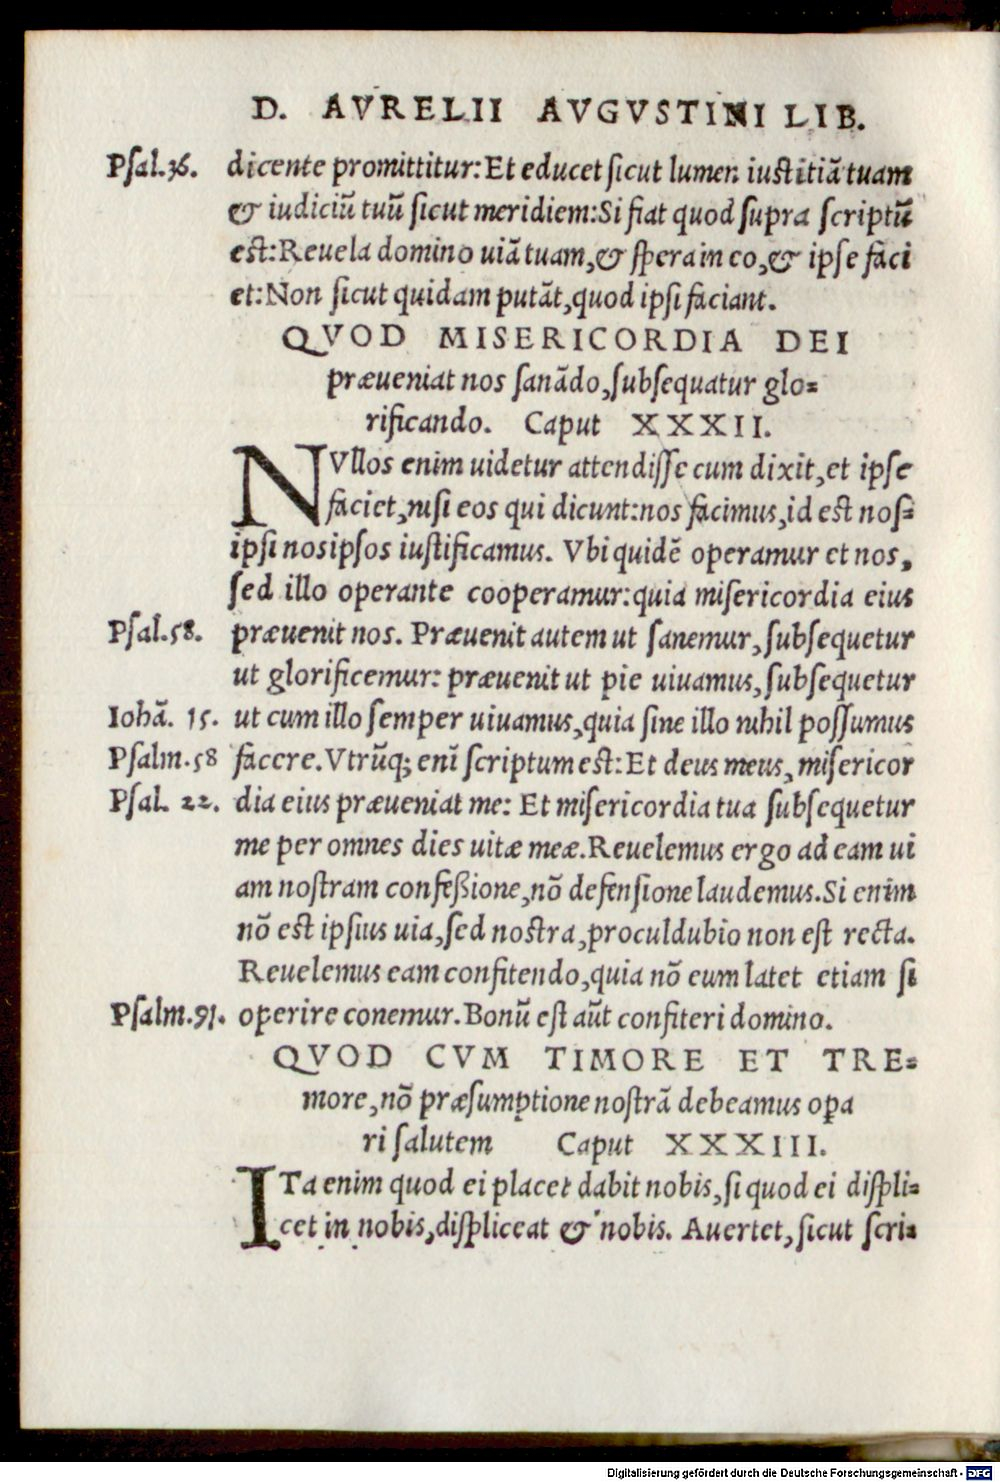 D. AVRELII AVGVSTINI LIB.
Psal.36. dicente promittitur: Et educet sicut lumen iustitiā tuam
& iudiciū tuū sicut meridiem: Si fiat quod supra scriptū
est: Reuela domino uiā tuam, & spera in eo, & ipse faci
et: Non sicut quidam putāt, quod ipsi faciant.
QVOD MISERICORDIA DEI
præueniat nos sanādo, subsequatur glo=
rificando. Caput XXXII.
NVllos enim uidetur attendisse cum dixit, et ipse
faciet, nisi eos qui dicunt: nos facimus, id est nos=
ipsi nosipsos iustificamus. Vbi quidē operamur et nos,
sed illo operante cooperamur: quia misericordia eius
Psal.58. præuenit nos. Præuenit autem ut sanemur, subsequetur
ut glorificemur: præuenit ut pie uiuamus, subsequetur
Iohā. 15. ut cum illo semper uiuamus, quia sine illo nihil possumus
Psalm.58 facere. Vtrūq; enī scriptum est: Et deus meus, misericor
Psal. 22. dia eius præueniat me: Et misericordia tua subsequetur
me per omnes dies uitæ meæ. Reuelemus ergo ad eam ui
am nostram confeßione, nō defensione laudemus. Si enim
nō est ipsius uia, sed nostra, proculdubio non est recta.
Reuelemus eam confitendo, quia nō eum latet etiam si
Psalm.91. operire conemur. Bonū est aūt confiteri domino.
QVOD CVM TIMORE ET TRE=
more, nō præsumptione nostrā debeamus oꝑa
ri salutem Caput XXXIII.
ITa enim quod ei placet dabit nobis, si quod ei displi=
cet in nobis, displiceat & nobis. Auertet, sicut scri=
Digitalisierung gefördert durch die Deutsche Forschungsgemeinschaft - DFG